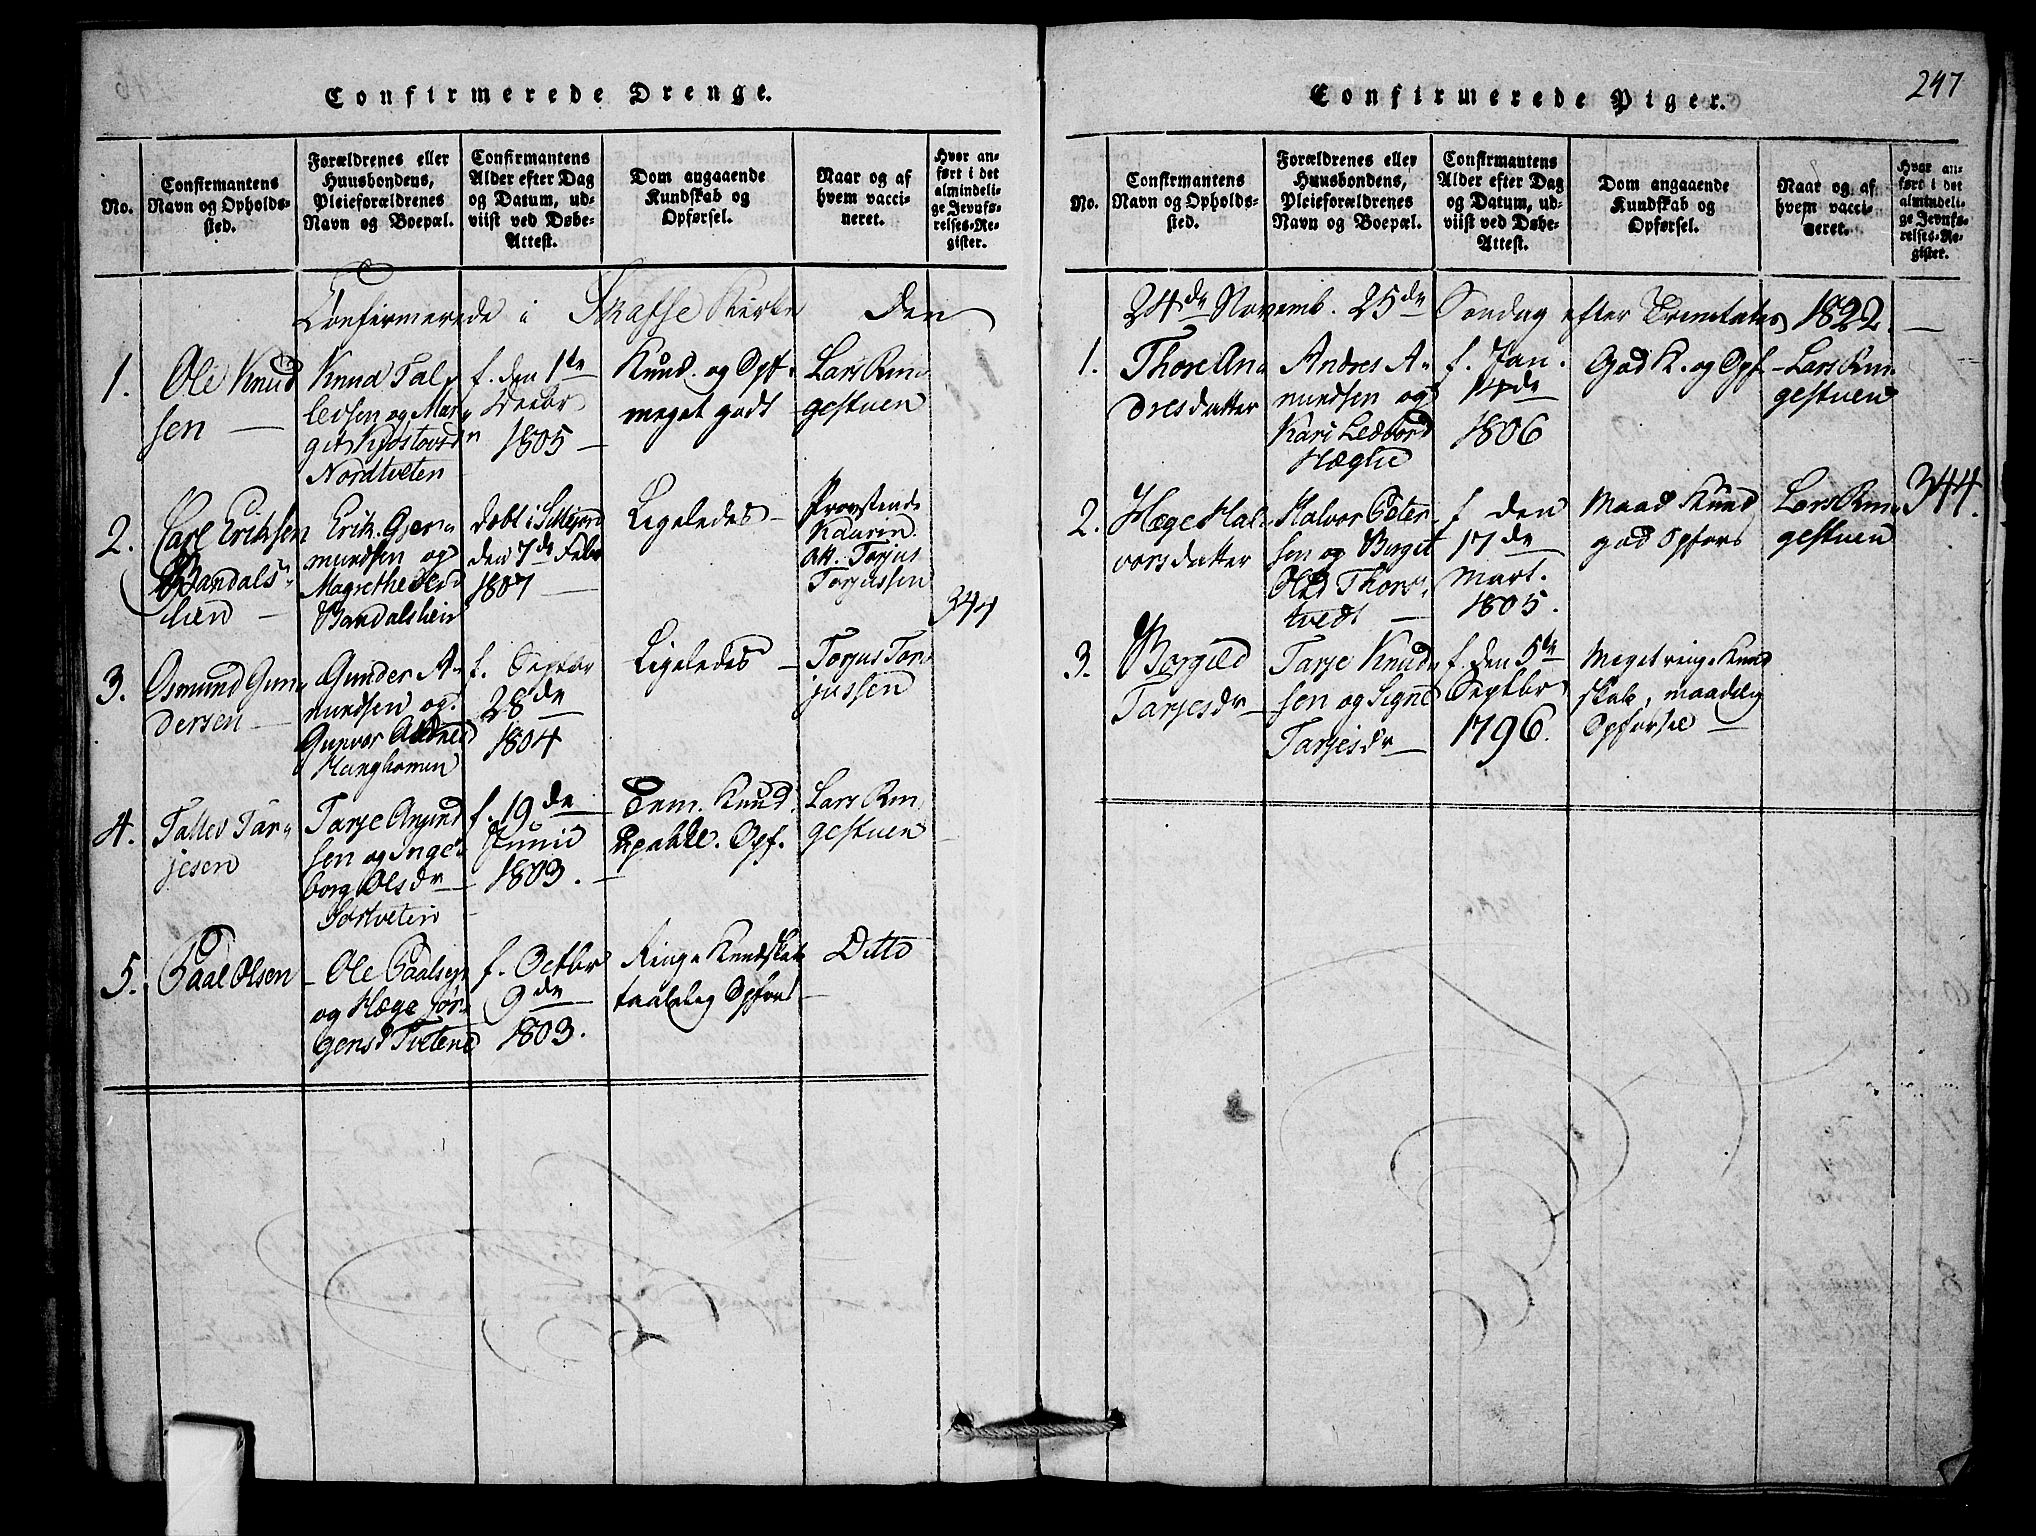 Confirmerede Drenge.
No.
Confirmantens
Navn og Opholds-
sted.
Forældrenes eller
Huusbondens,
Pleieforældrenes
Navn og Boepæl.
Confirmantens
Alder efter Dag
og Datum, ud-
viist ved Døbe-
Attest.
Dom angaaende
Kundskab og
Opførsel.
Naar og af
hvem vacci-
neret.
Hvor an-
ført i det
almindeli-
ge Jevnfø-
relses-Re-
gister.
Confirmerede i Skafse Kirke Den
1.
Ole Knud
sen
Knud Tal
lefsen og Mar
git
Nordtveten
f. den 1te
Decbr
1805
Kund. og Opf.
meget godt
Lars Rin
gestuen
2.
Carl Eriksen
Bandals
lien
Erik Gier
mundsen og
Magrethe
Bandalslien
døbt i
den 7de Febr
1807
Ligeledes
Provstinde
Kaurin.
Att. Torjus
Torjussen
344
3.
Osmund Gun
dersen
Gunder A
mundsen og
Gunvor
f. Septbr
28de
1804
Ligeledes
Torjus Tor
jussen
4.
Tallev Tar
jesen
Tarje
sen og Inge
borg Olsdr
f. 19de
Junii
1803.
Tem. Knud
Opf.
Lars Rin
gestuen
5.
Paal Olsen
Ole Paalsen
og Hæge Jør
gensd Tveten
f. Octbr
9de
1803.
Ringe Kundskab
taalelig Opførs
Ditto
Confirmerede Piger.
247
No.
Confirmantens
Navn og Opholds-
sted.
Forældrenes eller
Huusbondens,
Pleieforældrenes
Navn og Boepæl.
Confirmantens
Alder efter Dag
og Datum, ud-
viist ved Døbe-
Attest.
Dom angaaende
Kundskab og
Opførsel.
Naar og af
hvem vacci-
neret.
Hvor an-
ført i det
almindeli-
ge Jevnfø-
relses-Re-
gister.
24de Novemb. 25de Søndag efter Trinitatis 1822.
1.
Thore An
dresdatter
Andres A
mundsen og
Kari
f. Jan.
14de
1806
God K. og Opf
Lars Rin
gestuen
2.
Hæge Hal
vorsdatter
Halvor Peter
sen og Birgit
Olsd Thors
tvedt
f den
17de
Mart.
1805.
Maad Kund
god Opførs
Lars Rin
gestuen
344.
3.
Borgild
Tarjesdr
Tarje Knud
sen og Signe
Tarjesdr
f. den 5te
Septbr
1796.
Meget ringe Kund
skab, maadelig
Opførsel